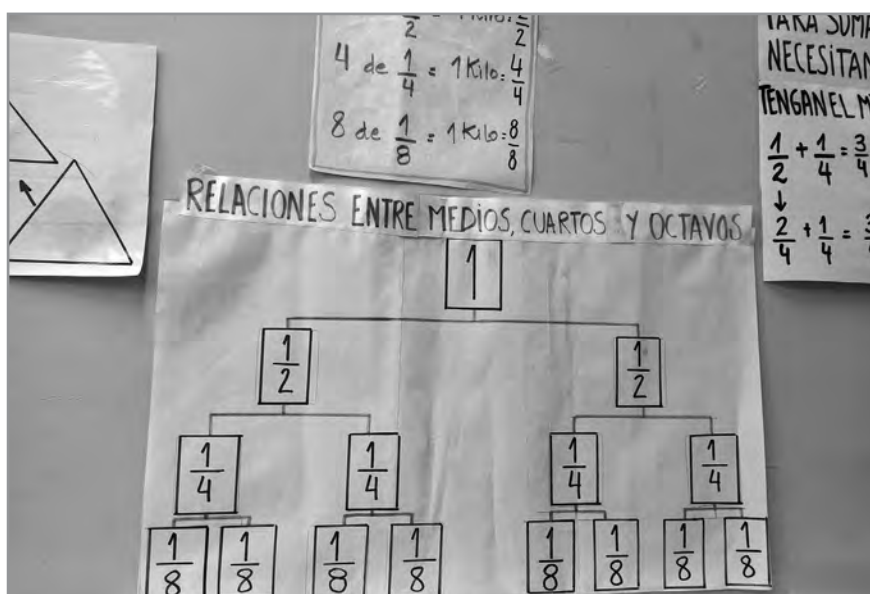 1/2 = 1 Kilo = 2/2
4 de 1/4 = 1 Kilo = 4/4
8 de 1/8 = 1 Kilo = 8/8
PARA SUMA
NECESITAN
TENGAN EL M
1/2 + 1/4 = 3/4
↓
2/4 + 1/4 = 3
RELACIONES ENTRE MEDIOS, CUARTOS Y OCTAVOS
1
1/2 1/2
1/4 1/4 1/4 1/4
1/8 1/8 1/8 1/8 1/8 1/8 1/8 1/8